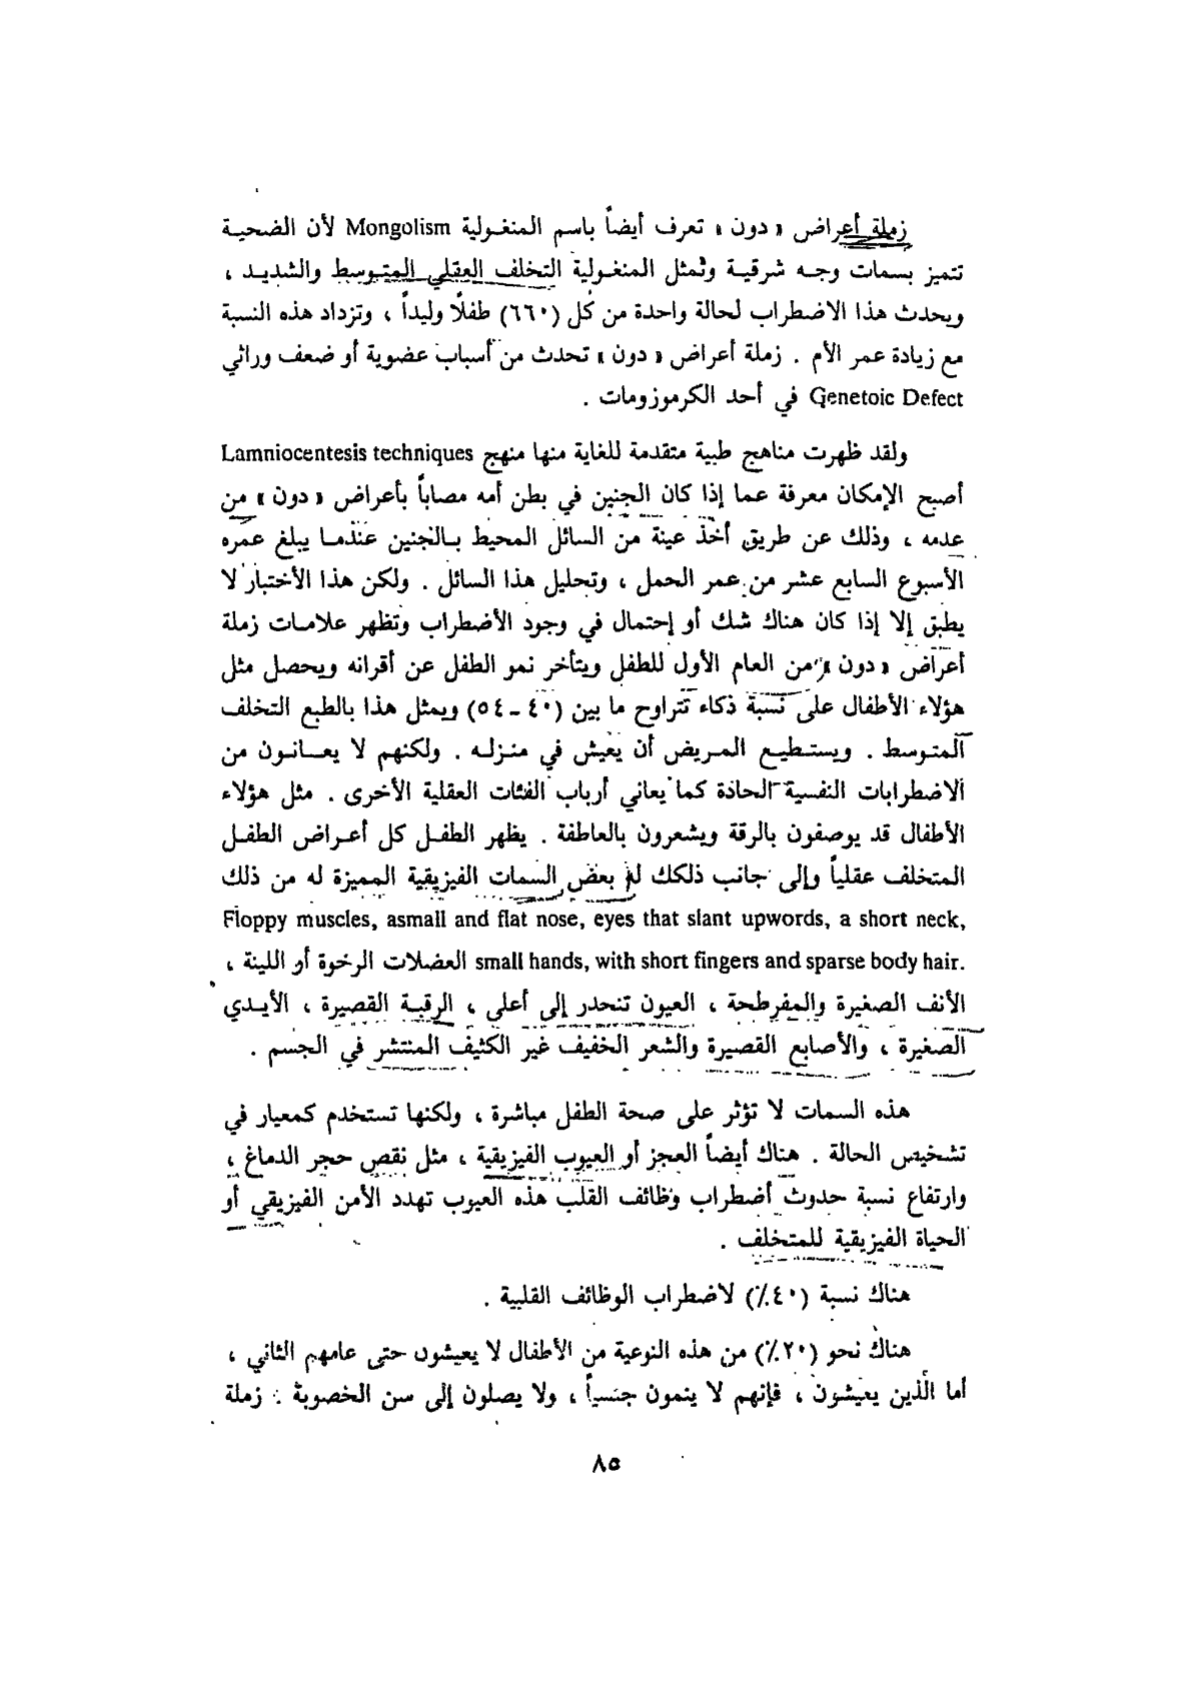 زملة أعراض « دون » تعرف أيضاً باسم المنغولية Mongolism لأن الضحية
تتميز بسمات وجه شرقية وتمثل المنغولية التخلف العقلي المتوسط والشديد ،
ويحدث هذا الاضطراب لحالة واحدة من كل (٦٦٠) طفلًا وليداً ، وتزداد هذه النسبة
مع زيادة عمر الأم . زملة أعراض « دون » تحدث من أسباب عضوية أو ضعف وراثي
Genetoic Defect في أحد الكرموزومات .
ولقد ظهرت مناهج طبية متقدمة للغاية منها منهج Lamniocentesis techniques
أصبح الإمكان معرفة عما إذا كان الجنين في بطن أمه مصاباً بأعراض « دون » من
عدمه ، وذلك عن طريق أخذ عينة من السائل المحيط بالجنين عندما يبلغ عمره
الأسبوع السابع عشر من عمر الحمل ، وتحليل هذا السائل . ولكن هذا الأختبار لا
يطبق إلا إذا كان هناك شك أو إحتمال في وجود الأضطراب وتظهر علامات زملة
أعراض « دون » من العام الأول للطفل ويتأخر نمو الطفل عن أقرانه ويحصل مثل
هؤلاء الأطفال على نسبة ذكاء تتراوح ما بين (٤٠ - ٥٤) ويمثل هذا بالطبع التخلف
المتوسط . ويستطيع المريض أن يعيش في منزله . ولكنهم لا يعانون من
الاضطرابات النفسية الحاذة كما يعاني أرباب الفئات العقلية الأخرى . مثل هؤلاء
الأطفال قد يوصفون بالرقة ويشعرون بالعاطفة . يظهر الطفل كل أعراض الطفل
المتخلف عقلياً وإلى جانب ذلكك لم بعض السمات الفيزيقية المميزة له من ذلك
Floppy muscles, asmall and flat nose, eyes that slant upwords, a short neck,
small hands, with short fingers and sparse body hair. العضلات الرخوة أو اللينة ،
الأنف الصغيرة والمفرطحة ، العيون تنحدر إلى أعلى ، الرقبة القصيرة ، الأيدي
الصغيرة ، والأصابع القصيرة والشعر الخفيف غير الكثيف المنتشر في الجسم .
هذه السمات لا تؤثر على صحة الطفل مباشرة ، ولكنها تستخدم كمعيار في
تشخيص الحالة . هناك أيضاً العجز أو العيوب الفيزيقية ، مثل نقص حجر الدماغ ،
وارتفاع نسبة حدوث أضطراب وظائف القلب هذه العيوب تهدد الأمن الفيزيقي أو
الحياة الفيزيقية للمتخلف .
هناك نسبة (٤٠٪) لاضطراب الوظائف القلبية .
هناك نحو (٢٠٪) من هذه النوعية من الأطفال لا يعيشون حتى عامهم الثاني ،
أما الذين يعيشون ، فإنهم لا ينمون جنسياً ، ولا يصلون إلى سن الخصوبة . زملة
٨٥